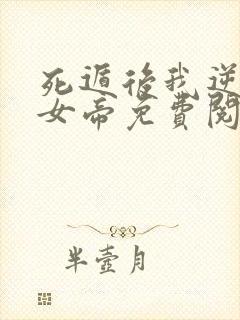 死遁後我逆
女帝免費閱
半壺月